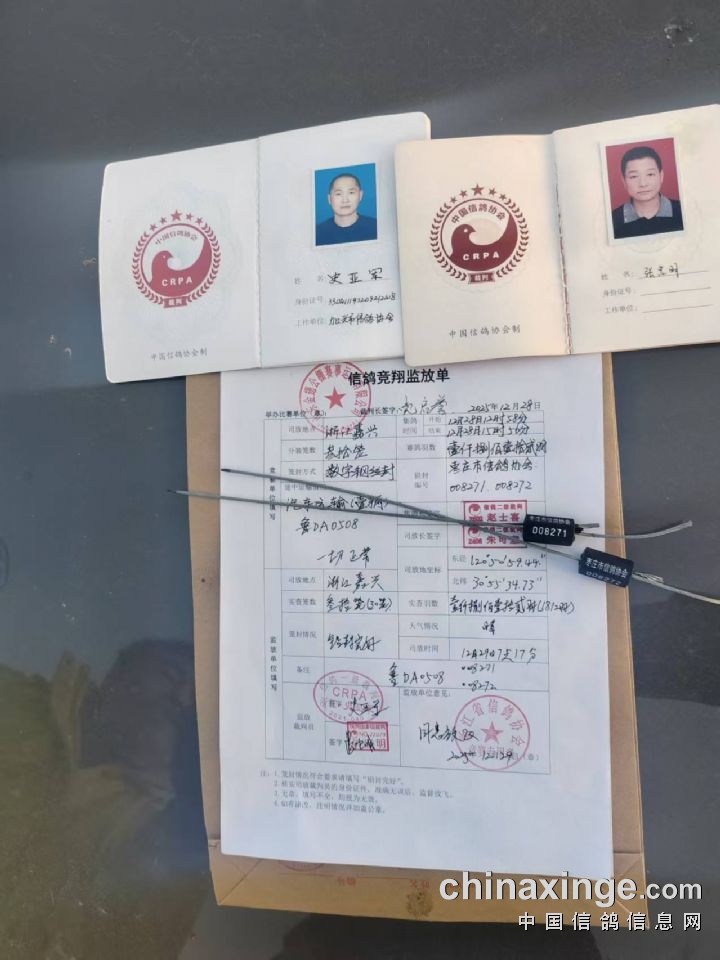 中国信鸽协会
CRPA
裁判
中国信鸽协会制
姓 名: 史亚军
身份证号:
工作单位: 加兴市信鸽协会
中国信鸽协会
CRPA
裁判
中国信鸽协会制
姓 名: 张忠明
身份证号:
工作单位:
信鸽竞翔监放单
举办比赛单位(章): 裁判长签字: 2025年12月28日
司放地点 浙江嘉兴 集鸽时间 开始 12月28日12时58分
结束 12月28日15时56分
分装笼数 叁拾笼 赛鸽羽数 壹仟捌佰壹拾贰羽
笼封方式 数字钢丝封 铅封编号 枣庄市信鸽协会
008271.008272
途中运输情况
汽车运输(壹辆)
鲁DA0508
一切正常
司放长签字 赵士喜
司放地坐标 东经 120°50′59.44"
北纬 30°55′34.73"
竞翔单位填写
司放地点 浙江嘉兴 实查笼数 叁拾笼(30笼) 实查羽数 壹仟捌佰壹拾贰羽(1812羽)
笼封情况 铅封完好 天气情况 晴
司放时间 12月29日7点17分
备注 鲁DA0508 008271
008272
监放单位填写
监放裁判员 签字
监放单位意见:
同意放飞
2025年12月29日(章)
CRPA
注: 1. 笼封情况符合要求请填写“铅封完好”。
2. 核实司放裁判员的身份证件,准确无误后,监督放飞。
3. 无章、填写不全,均视为无效。
4. 如有涂改,注明情况并加盖公章。
枣庄市信鸽协会
008271
枣庄市信鸽协会
008272
chinaxinge.com
中国信鸽信息网